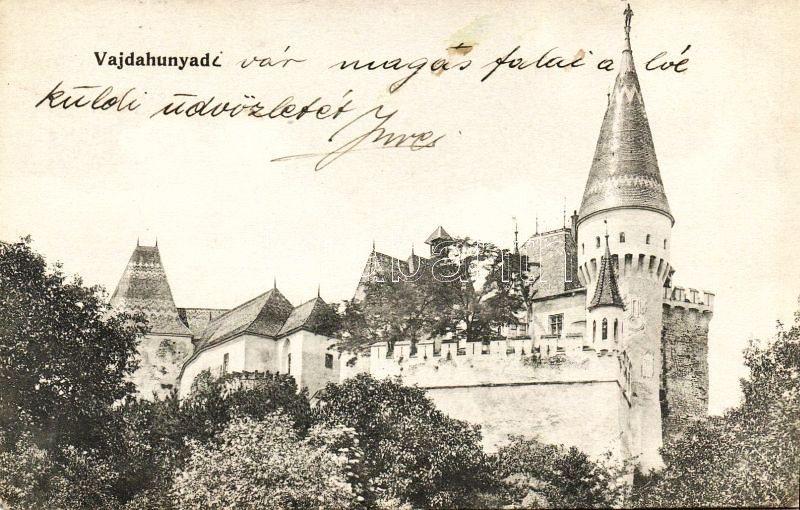 Vajdahunyadi vár magas falai a
küldi üdvözletét Imre